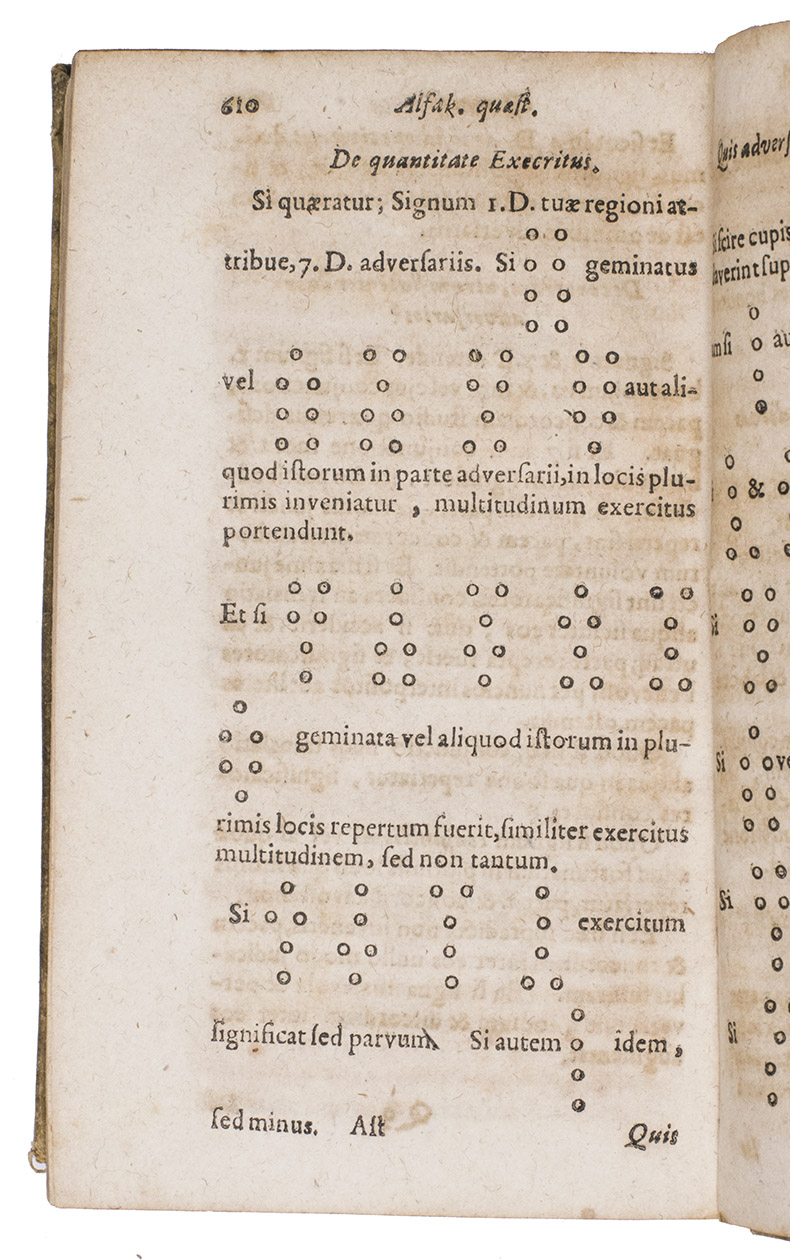 610 Alfak. quæst.
De quantitate Execritus.
Si quæratur; Signum 1. D. tuæ regioni at-
tribue, 7. D. adversariis. Si geminatus
vel aut ali-
quod istorum in parte adversarii, in locis plu-
rimis inveniatur , multitudinum exercitus
portendunt.
Et si
geminata vel aliquod istorum in plu-
rimis locis repertum fuerit, similiter exercitus
multitudinem, sed non tantum.
Si exercitum
significat sed parvum Si autem idem ,
sed minus. Ast
Quis
Quis adver
scire cupis
sup
&
Si
Si
Si